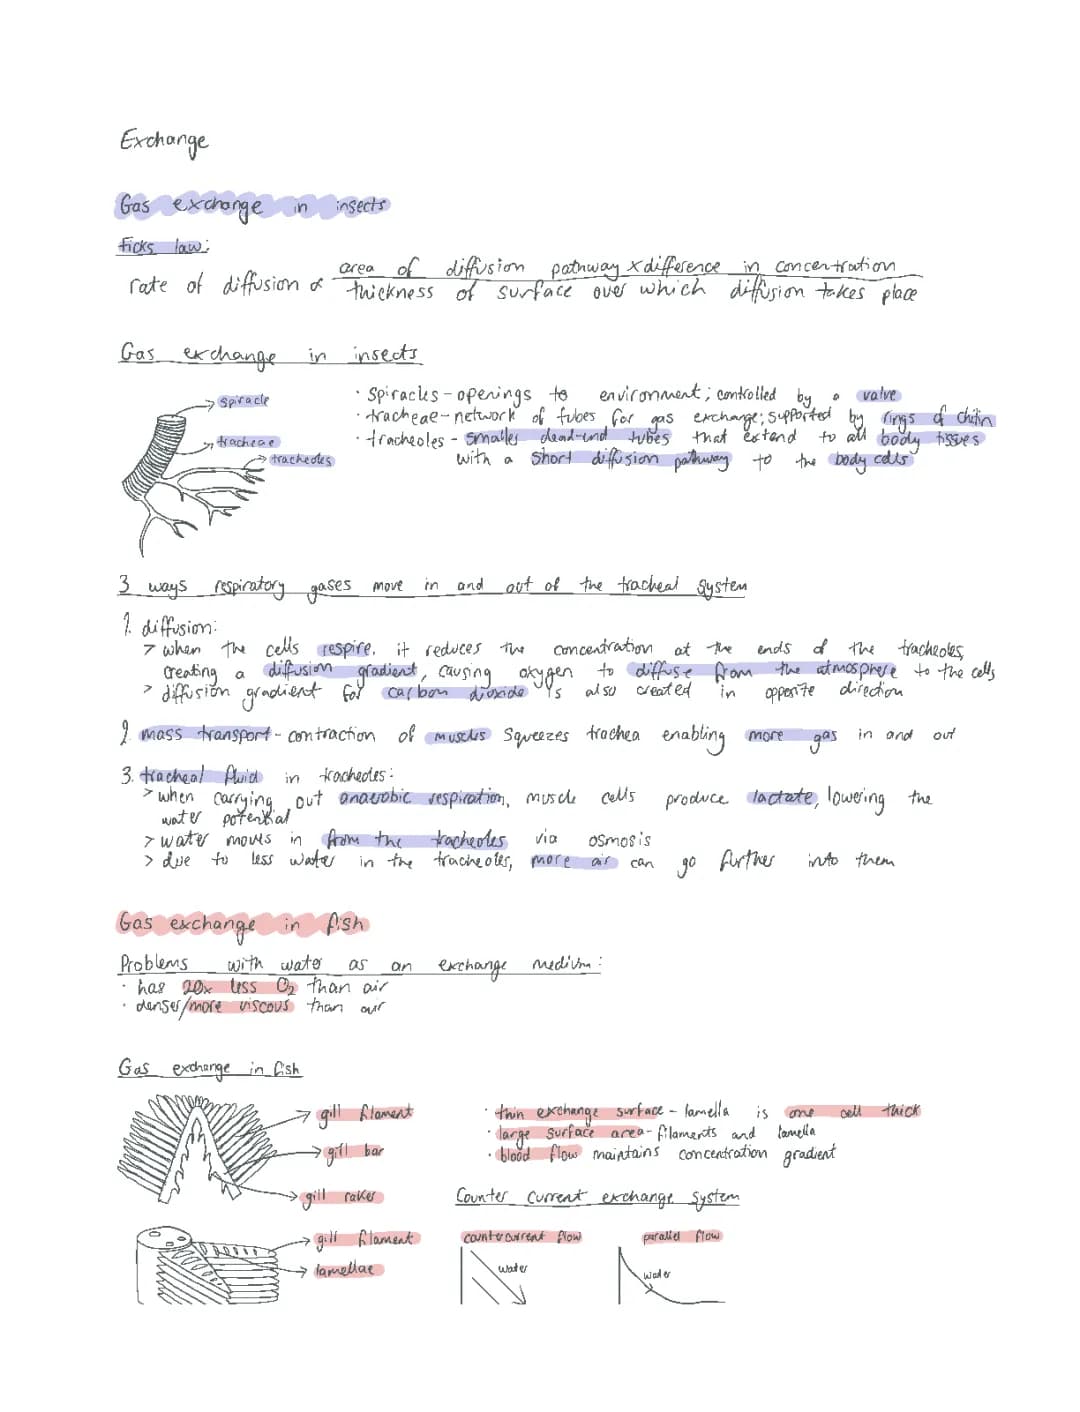 Exchange
Gas exchange in insects
ficks law:
rate of diffusion ∝ area of diffusion pathway x difference in concentration
thickness of surface over which diffusion takes place
Gas exchange in insects
spiracle
tracheae
tracheoles
· Spiracles - openings to environment; controlled by a valve
· tracheae - network of tubes for gas exchange; supported by rings of chitin
· tracheoles - smaller dead-end tubes that extend to all body tissues
with a short diffusion pathway to the body cells
3 ways respiratory gases move in and out of the tracheal system
1. diffusion:
> when the cells respire, it reduces the concentration at the ends of the tracheoles,
creating a diffusion gradient, causing oxygen to diffuse from the atmosphere to the cells
> diffusion gradient for carbon dioxide is also created in opposite direction
2. mass transport - contraction of muscles squeezes trachea enabling more gas in and out
3. tracheal fluid in tracheoles:
> when carrying out anaerobic respiration, muscle cells produce lactate, lowering the
water potential
> water moves in from the tracheoles via osmosis
> due to less water in the tracheoles, more air can go further into them
Gas exchange in fish
Problems with water as an exchange medium:
· has 20x less O₂ than air
· denser/more viscous than air
Gas exchange in fish
gill filament
gill bar
gill raker
gill filament
lamellae
· thin exchange surface - lamella is one cell thick
· large surface area - filaments and lamella
· blood flow maintains concentration gradient
Counter current exchange system
countercurrent flow
water
parallel flow
water